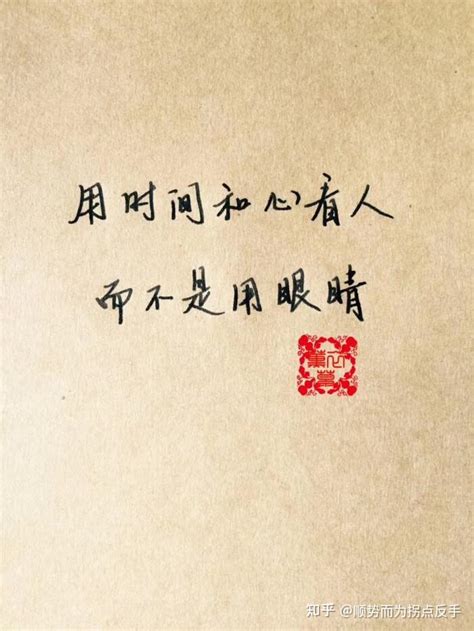 用时间和心看人
而不是用眼睛
知乎 @顺势而为拐点反手